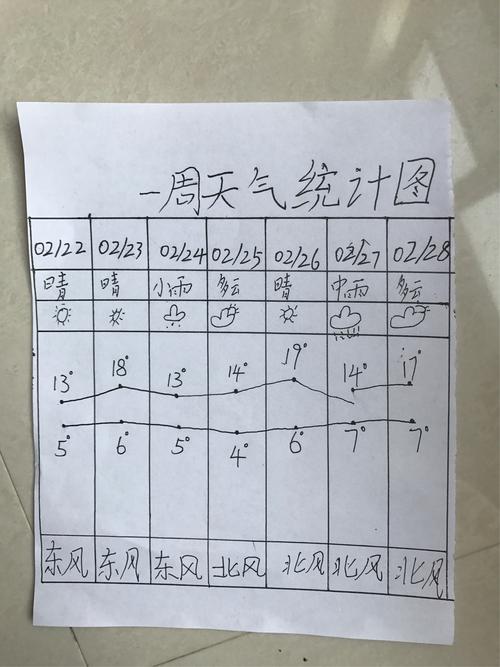 一周天气统计图
02/22 02/23 02/24 02/25 02/26 02/27 02/28
晴 晴 小雨 多云 晴 中雨 多云
13° 18° 13° 14° 19° 14° 17°
5° 6° 5° 4° 6° 7° 7°
东风 东风 东风 北风 北风 北风 北风